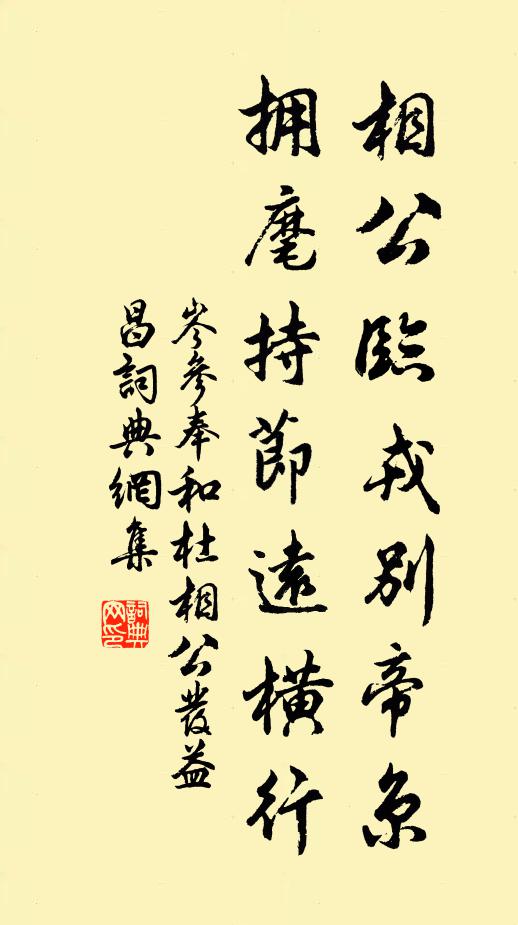 相公臨戎別帝京
拥麾持節遠橫行
岑參奉和杜相公發益
昌詞典網集
詞典
网印